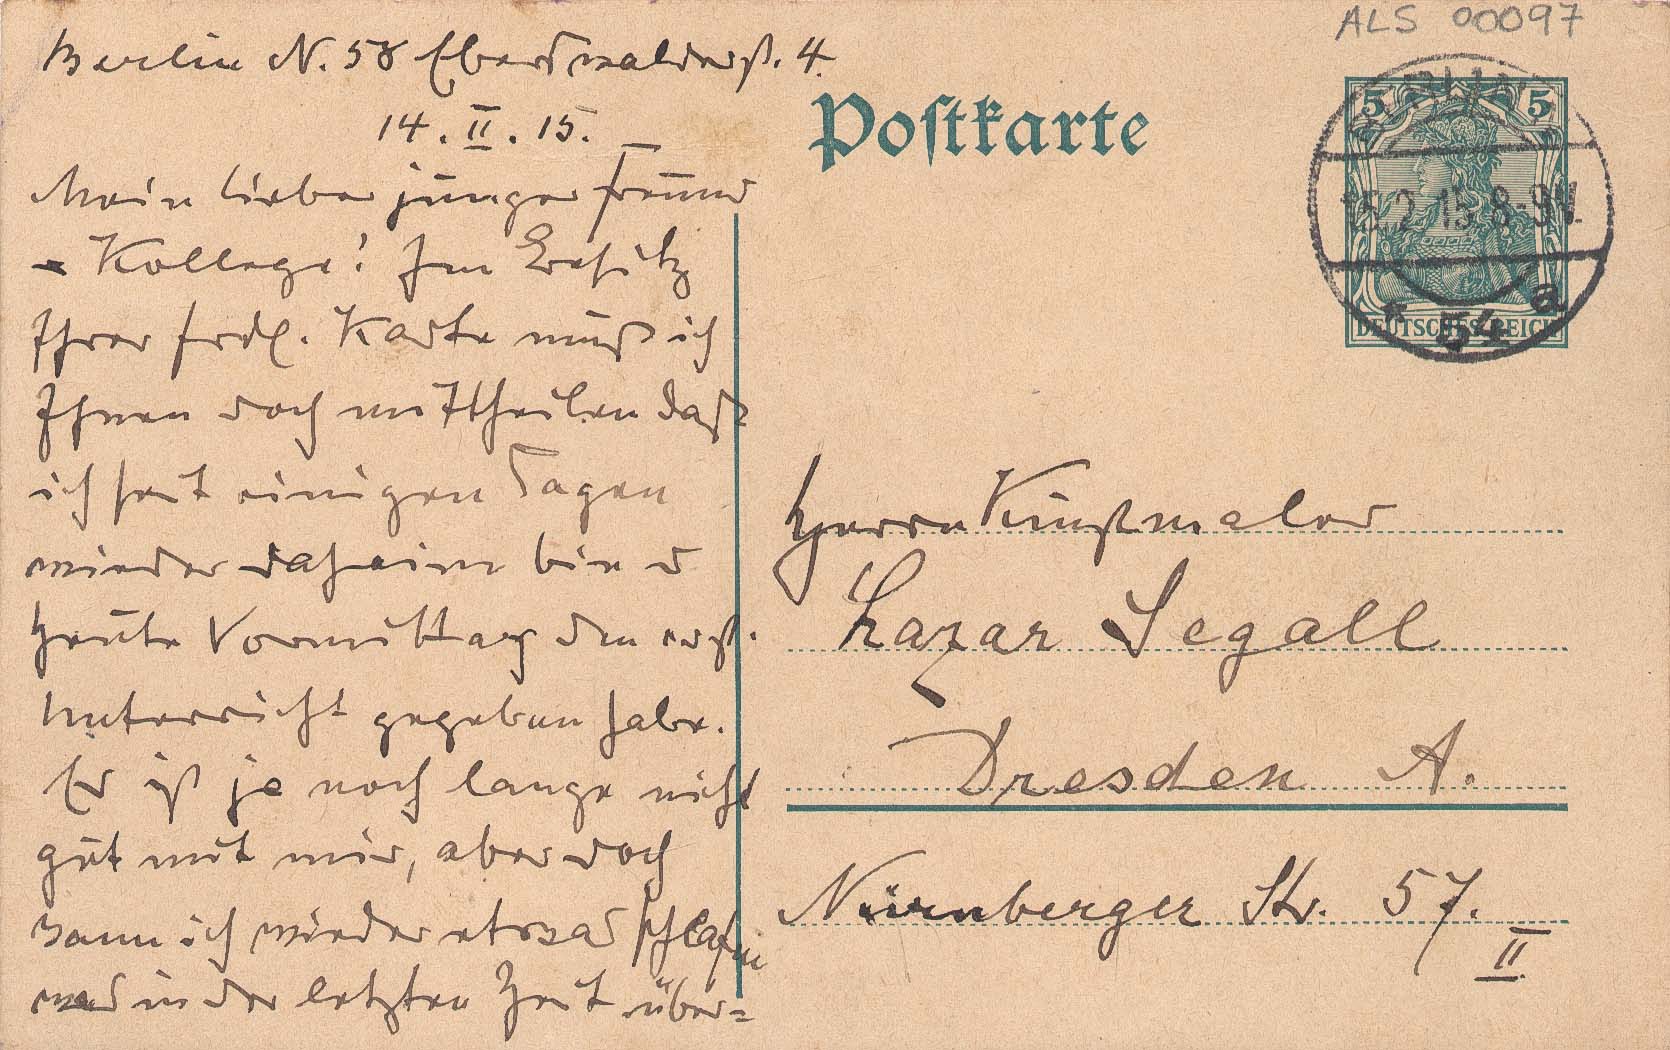 ALS 00097
Berlin N. 58 Eberswalderst. 4.
14. II. 15.
Mein lieber junger Freund
u Kollege! Im Besitz
Ihrer frdl. Karte muß ich
Ihnen doch mittheilen daß
ich seit einigen Tagen
wieder daheim bin u
heute Vormittag den erst.
Unterricht gegeben habe.
Er ist ja noch lange nicht
gut mit mir, aber doch
kann ich wieder etwas schlafen
was in der letzten Zeit über=
Postkarte
5 5
DEUTSCHES REICH
BERLIN
15.2.15.8-9V.
* 54 a
Herrn Kunstmaler
Lazar Segall
Dresden A.
Nürnberger Str. 57.
II.